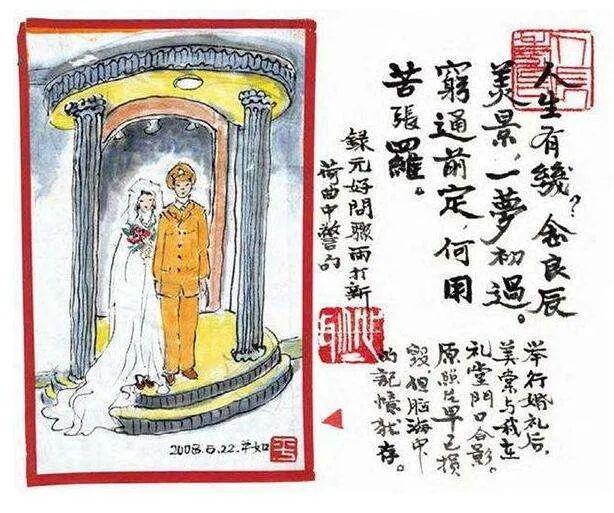 人生有幾？念良辰
美景，一夢初過。
窮通前定，何用
苦張羅。
錄元好問驟雨打新
荷曲中警句
举行婚礼后，
美棠与我在
礼堂門口合影。
原照片早已损
毁但脑海中
的記憶犹存。
2008.6.22.平如